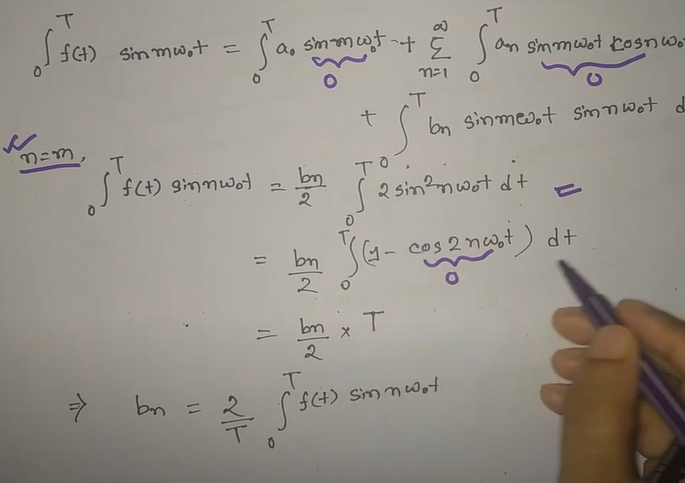 ∫₀ᵀ f(t) sin mω₀t = ∫₀ᵀ a₀ sin mω₀t + ∑ₙ₌₁^∞ ∫₀ᵀ an sin mω₀t cos nω₀
0 0
+ ∫₀ᵀ bn sin mω₀t sin nω₀t d
n=m,
∫₀ᵀ f(t) sin nω₀t = bn/2 ∫₀ᵀ 2 sin²nω₀t dt =
= bn/2 ∫₀ᵀ (1 - cos 2nω₀t) dt
0
= bn/2 × T
⇒ bn = 2/T ∫₀ᵀ f(t) sin nω₀t